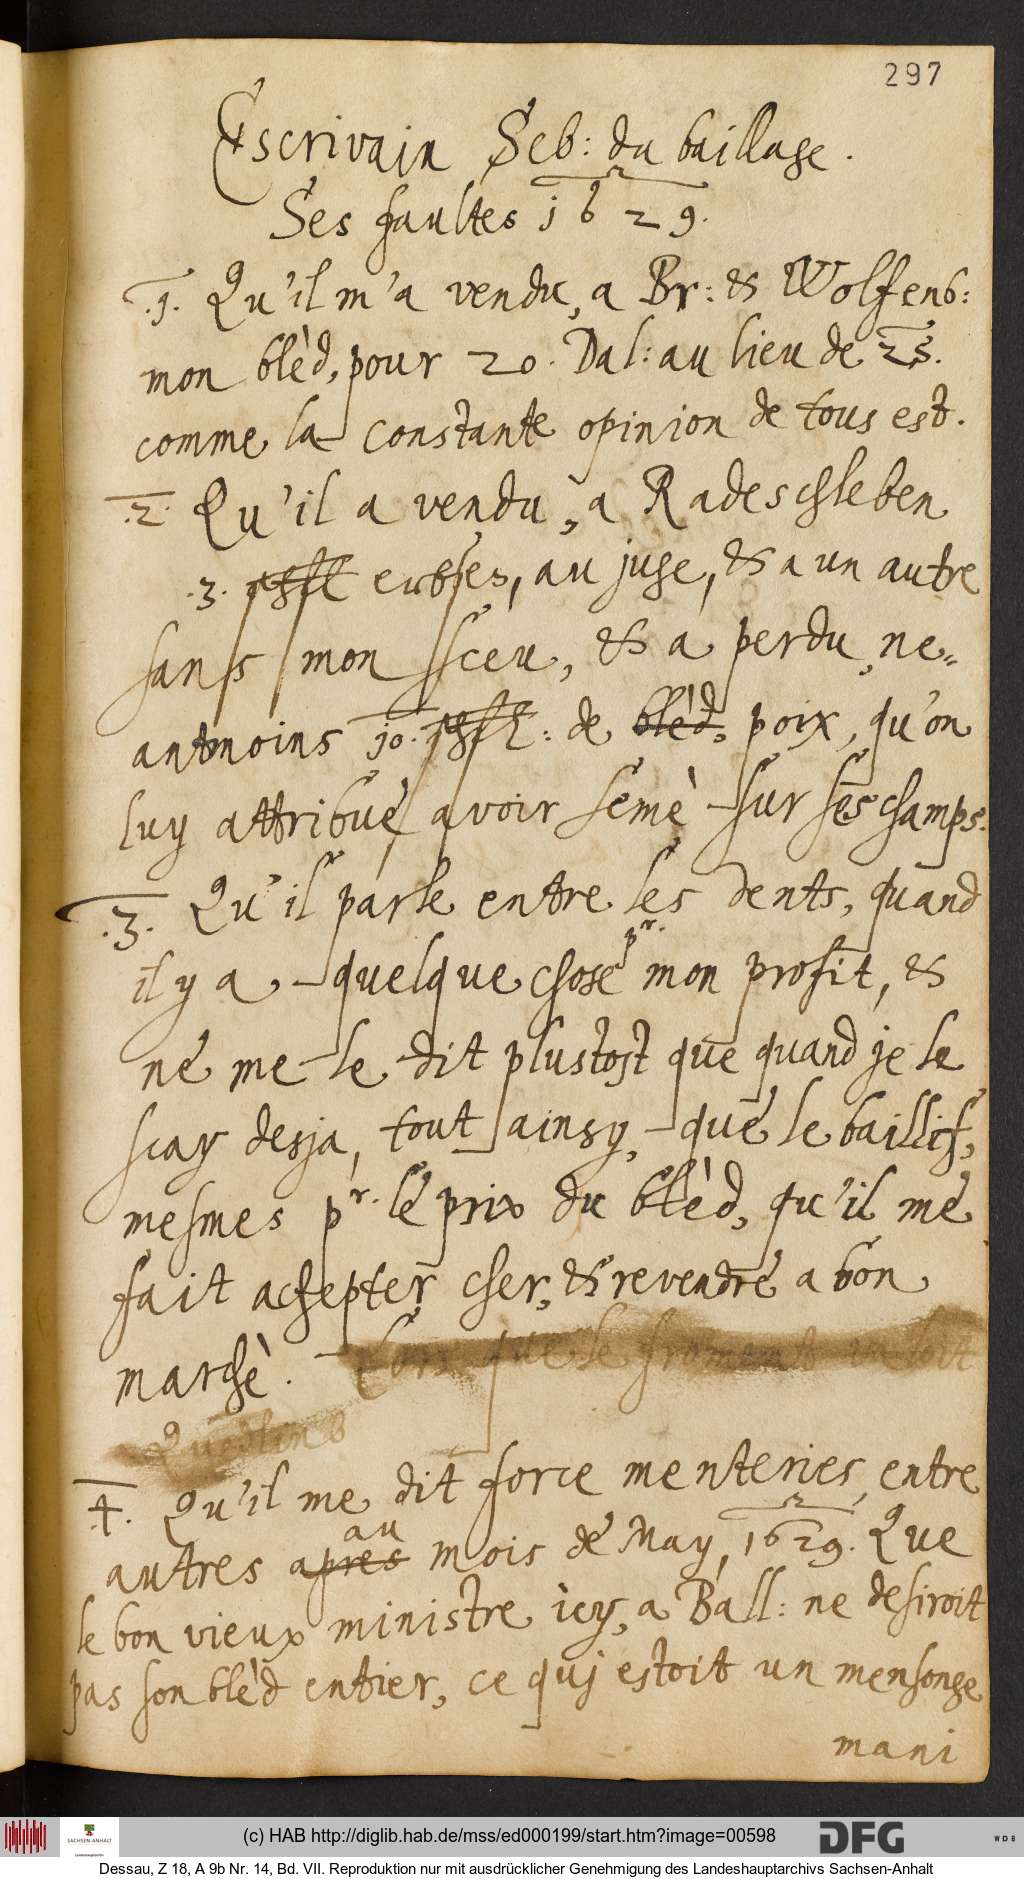 297
Escrivain Seb: du baillage.
Ses faultes 1629.
.1. Qu'il m'a vendu, a Br: & Wolfenb:
mon blèd, pour 20. Dal: au lieu de 25.
comme la constante opinion de tous est.
.2. Qu'il a vendu, a Radeschleben
.3. erbses, au juge, & a un autre
sans mon sceu, & a perdu, ne=
antmoins 10. : de blèd, poix, qu'on
luy attribuè, avoir semè sur ses champs.
.3. Qu'il parle entre les dents, quand
il y a, quelque chose pr. mon profit, &
ne me le dit plustost que quand je le
scay desja, tout ainsy, que le baillif,
mesmes pr. le prix du blèd, qu'il me
fait achepter cher, & revendre a bon
marchè. Lors que le froment
Quedlinb
.4. Qu'il me dit force menteries, entre
autres apres au mois de May, 1629. Que
le bon vieux ministre icy, a Ball: ne desiroit
pas son blèd entier, ce quj estoit un mensonge
mani
SACHSEN-ANHALT
(c) HAB http://diglib.hab.de/mss/ed000199/start.htm?image=00598
DFG
WDB
Dessau, Z 18, A 9b Nr. 14, Bd. VII. Reproduktion nur mit ausdrücklicher Genehmigung des Landeshauptarchivs Sachsen-Anhalt